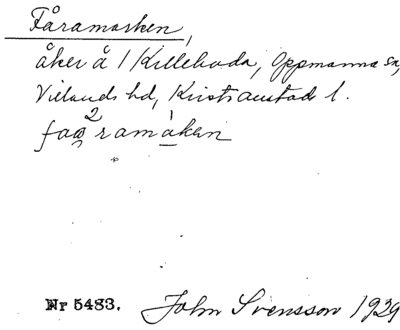 Fåramarken,
åker å 1 Killehuda, Oppmanna sn,
Villands hd, Kristianstads l.
2 1
faɷ̨ramáken
Nr 5483. John Svensson 1929